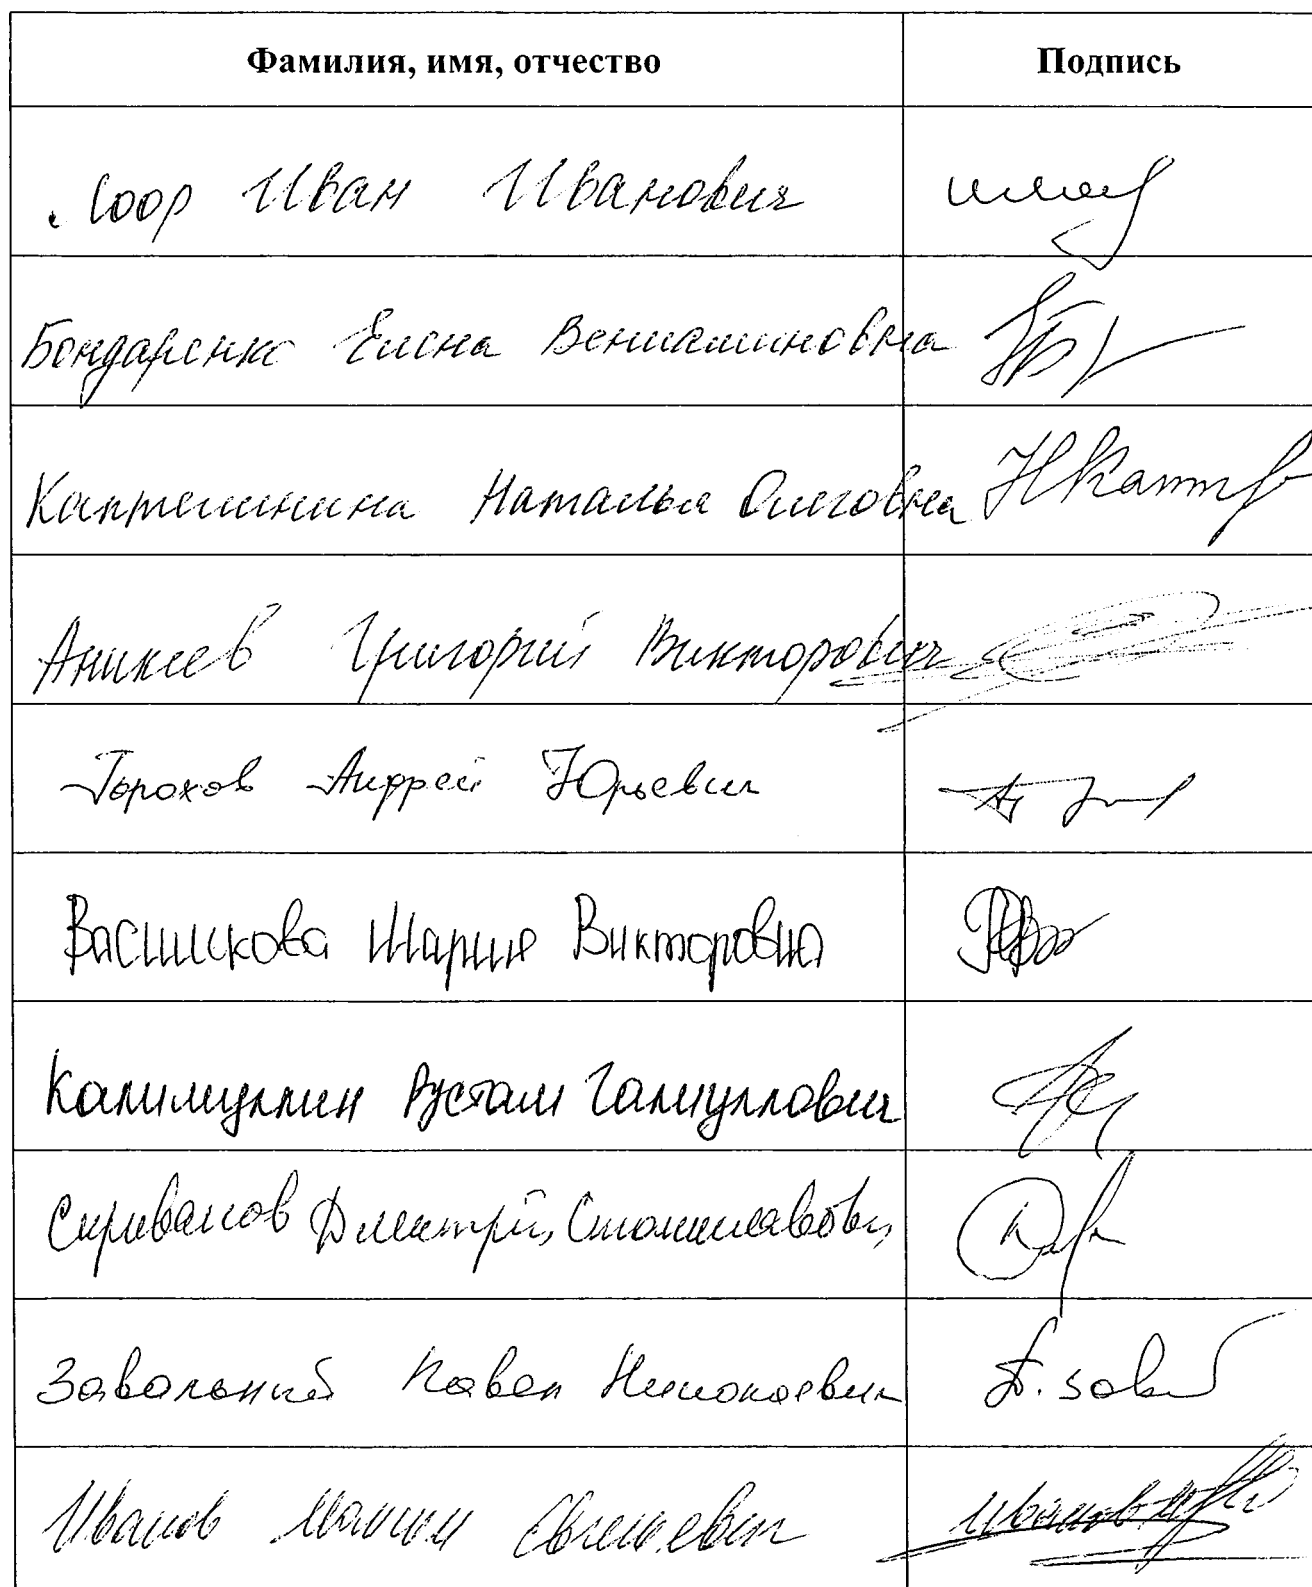 Фамилия, имя, отчество Подпись
Лоор Иван Иванович
Бондаренко Елена Вениаминовна
Каптелинина Наталья Олеговна НКапт
Аникеев Григорий Викторович
Горохов Андрей Юрьевич
Василькова Мария Викторовна
Калимуллин Рустам Галиуллович
Скриванов Дмитрий Станиславович
Завальный Павел Николаевич П. Зав
Иванов Максим Евгеньевич Иванов М